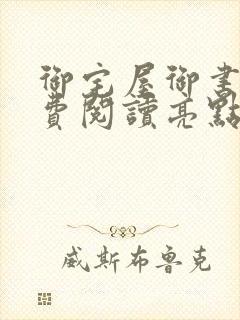 御宅屋御書
費閱讀亮點
威斯布魯克